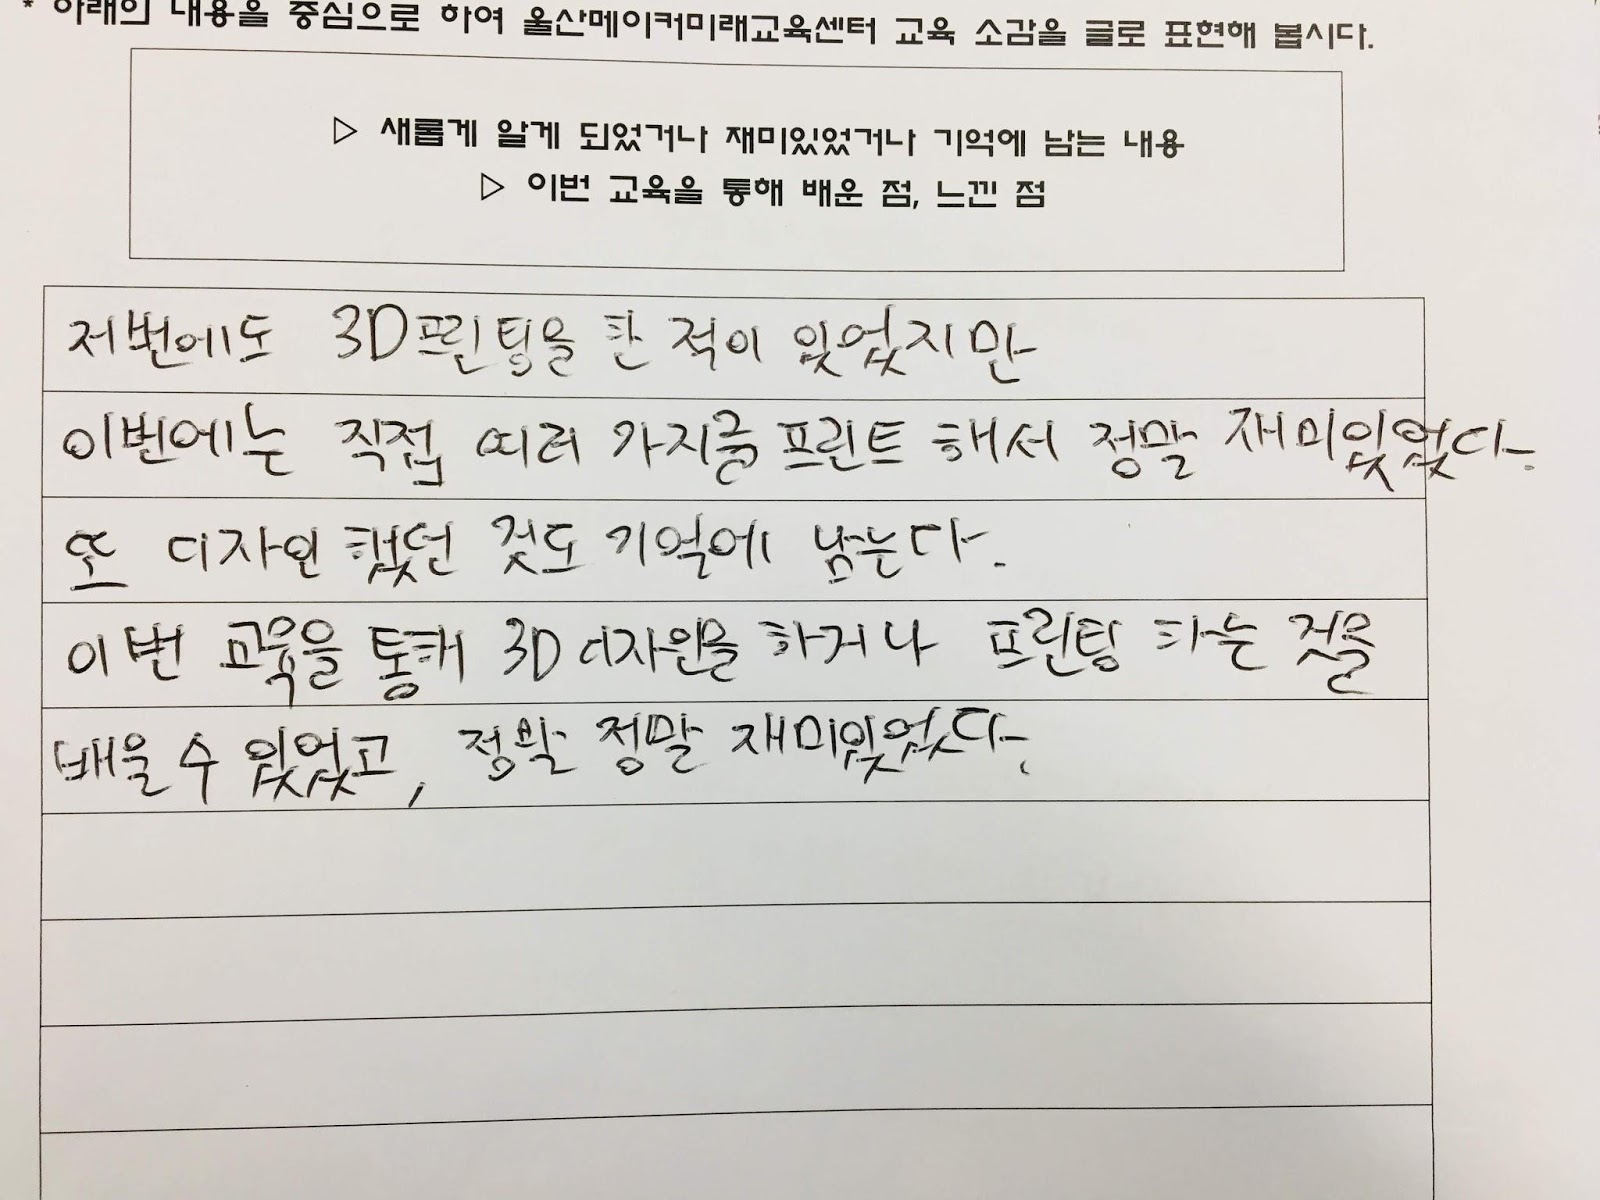 * 아래의 내용을 중심으로 하여 울산메이커미래교육센터 교육 소감을 글로 표현해 봅시다.
▷ 새롭게 알게 되었거나 재미있었거나 기억에 남는 내용
▷ 이번 교육을 통해 배운 점, 느낀 점
저번에도 3D프린팅을 한 적이 있었지만
이번에는 직접 여러 가지를 프린트 해서 정말 재미있었다.
또 디자인 했던 것도 기억에 남는다.
이번 교육을 통해 3D 디자인을 하거나 프린팅 하는 것을
배울 수 있었고, 정말 정말 재미있었다.